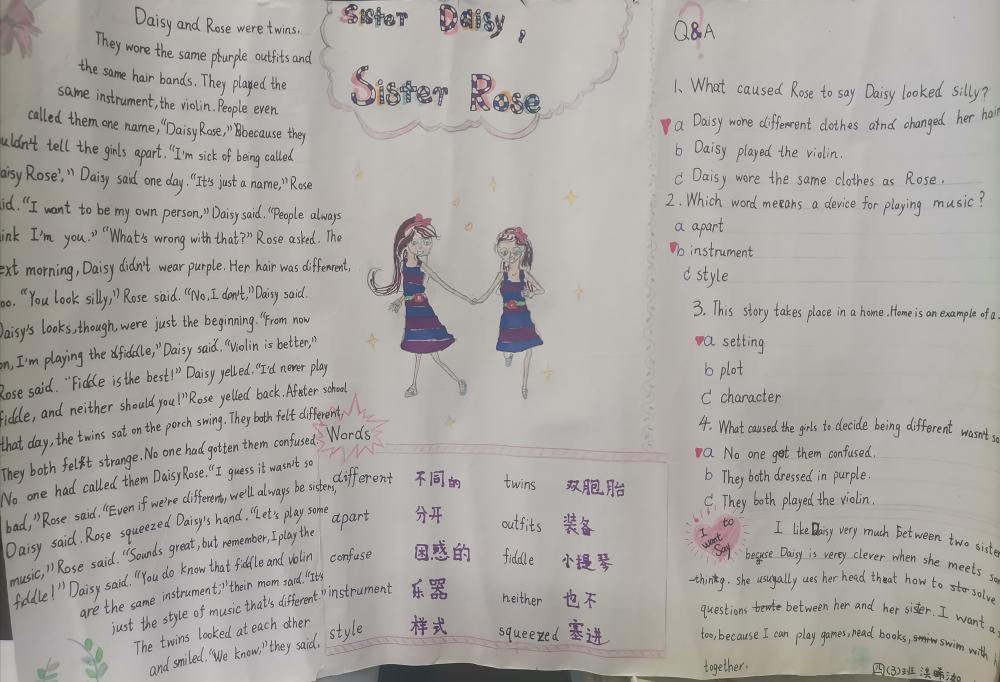 Daisy and Rose were twins.
They wore the same purple outfits and
the same hair bands. They played the
same instrument, the violin. People even
called them one name, "DaisyRose," because they
uldn't tell the girls apart. "I'm sick of being called
aisy Rose'," Daisy said one day. "It's just a name," Rose
id. "I want to be my own person," Daisy said. "People always
ink I'm you." "What's wrong with that?" Rose asked. The
ext morning, Daisy didn't wear purple. Her hair was different,
oo. "You look silly," Rose said. "No, I don't," Daisy said.
Daisy's looks, though, were just the beginning. "From now
on, I'm playing the fiddle," Daisy said. "Violin is better,"
Rose said. "Fiddle is the best!" Daisy yelled. "I'd never play
fiddle, and neither should you!" Rose yelled back. After school
that day, the twins sat on the porch swing. They both felt different.
They both felt strange. No one had gotten them confused.
No one had called them DaisyRose. "I guess it wasn't so
bad," Rose said. "Even if we're different, we'll always be sisters,
Daisy said. Rose squeezed Daisy's hand. "Let's play some
music," Rose said. "Sounds great, but remember, I play the
fiddle!" Daisy said. "You do know that fiddle and violin
are the same instrument," their mom said. "It's
just the style of music that's different."
The twins looked at each other
and smiled. "We know," they said.
Sister Daisy,
Sister Rose
Words
different 不同的 twins 双胞胎
apart 分开 outfits 装备
confuse 困惑的 fiddle 小提琴
instrument 乐器 neither 也不
style 样式 squeezed 塞进
Q&A
1、What caused Rose to say Daisy looked silly?
a Daisy wore different clothes and changed her hair
b Daisy played the violin.
c Daisy wore the same clothes as Rose.
2. Which word means a device for playing music?
a apart
b instrument
c style
3. This story takes place in a home. Home is an example of a.
a setting
b plot
c character
4. What caused the girls to decide being different wasn't so
a No one got them confused.
b They both dressed in purple.
c They both played the violin.
I want to Say
I like Daisy very much between two sister
becuse Daisy is very clever when she meets so
-thing. she usually ues her head that how to solve
questions between her and her sister. I want a
too, because I can play games, read books, swim with
together.
四(3)班